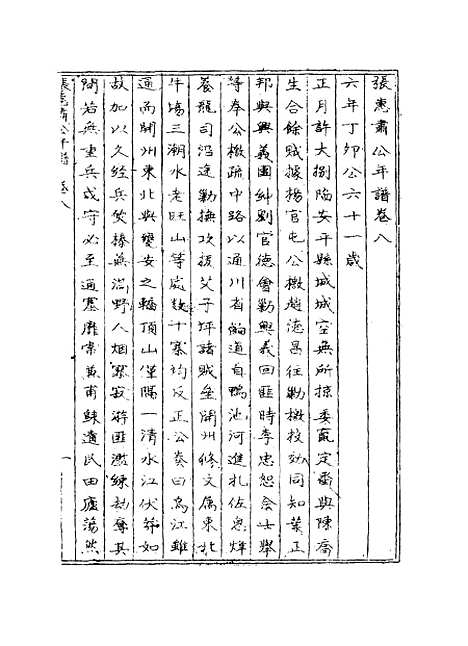 張惠肅公年譜卷八
六年丁卯公六十一歲
正月許大捌陷安平縣城城空無所掠委竄定番與陳喬
生合餘賊據楊官屯公檄趙德昌往勦檄投効同知葉正
邦與興義團糾劉官德會勦興義回匪時李忠恕會士舉
等奉公檄疏中路以通川省餉道自鴨池河進扎佐思烽
養龍司沿途勦撫攻拔父子坪諸賊壘開州修文屬東北
牛場三潮水老旺山等處數十寨均反正公奏曰烏江雖
通而開州東北與甕安之轎頂山僅隔一清水江伏莽如
故加以久經兵燹榛蕪滿野人烟寥寂游匪濫練劫奪其
間若無重兵戍守必至通塞靡常黃甫穌遺民田廬蕩然
張惠肅公年譜 卷八 一